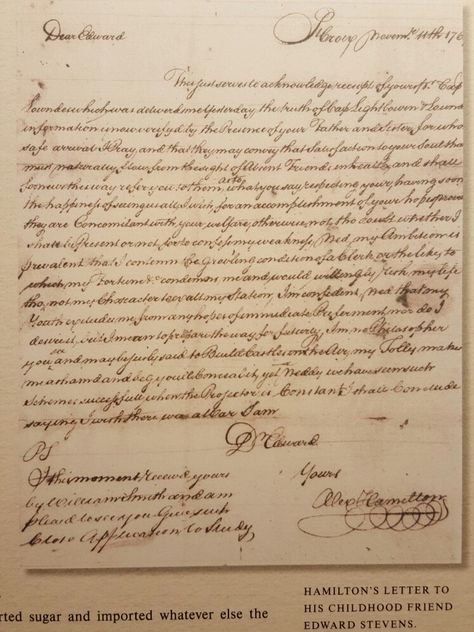 Dear Edward
St Croix Novemr. 11th 176
This just serves to acknowledge receipt of yours pr. Cap
Lowndes which was delivered me Yesterday, the truth of Cap Lightbowrn & Lownd
information is now verifyd by the Presence of your Father and Sister for who
safe arrival I Pray, and that they may convey that Satisfaction to your Soul tha
must naturally flow from the sight of Absent Friends in health, and shall
for news this way refer you to them, as to what you say respecting your having soon
the happiness of seeing us all, I wish, for an accomplishment of your hopes provid
they are Concomitant with your welfare, otherwise not, tho doubt whether I
shall be Present or not, for to confess my weakness, Ned, my Ambition is
prevalent that I contemn the Grov'ling condition of a Clerk or the like, to
which my Fortune &c condemns me and would willingly risk my life
tho, not my Character to exalt my Station, Im confident, Ned that my
Youth excludes me from any hopes of immediate Preferment nor do I
desire it, but I mean to prepare the way for futurity, Im no Philosopher
you see and may be jusly said to Build Castles in the Air, my Folly makes
me ashamd and beg youll Conceal it, yet Neddy we have seen such
Schemes successfull when the Projector is Constant I shall Conclude
saying I wish there was a War I am
Dr Edward
PS
I this moment receivd yours
by William Smith and am
pleasd to see you Give such
Close Application to Study
Yours
Alex Hamilton
HAMILTON'S LETTER TO
HIS CHILDHOOD FRIEND
EDWARD STEVENS.
rted sugar and imported whatever else the